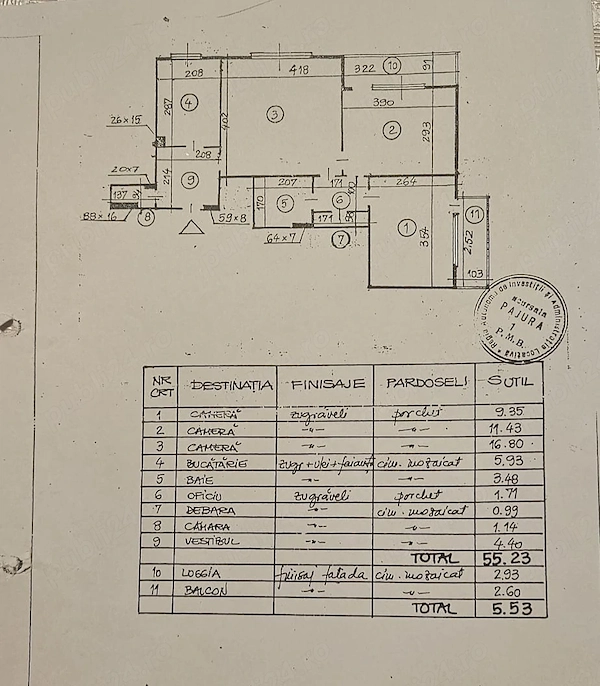 208
418
322
10
91
287
4
402
3
390
2
293
26×15
208
20×7
214
9
207
171
264
137
170
5
6
100
1
11
88×16
8
59×8
171
354
2,52
64×7
7
103
Regia Autonomă de Investiții și Administrație Locativă
PAJURA
1
P.M.B.
NR CRT DESTINAȚIA FINISAJE PARDOSELI S UTIL
1 CAMERĂ zugrăveli parchet 9.35
2 CAMERĂ -"- -"- 11.43
3 CAMERĂ -"- -"- 16.80
4 BUCĂTĂRIE zugr+ulei+faianță cim. mozaicat 5.93
5 BAIE -"- -"- 3.48
6 OFICIU zugrăveli parchet 1.71
7 DEBARA -"- cim. mozaicat 0.99
8 CĂMARA -"- -"- 1.14
9 VESTIBUL -"- -"- 4.40
TOTAL 55.23
10 LOGGIA finisaj fatada cim. mozaicat 2.93
11 BALCON -"- -"- 2.60
TOTAL 5.53